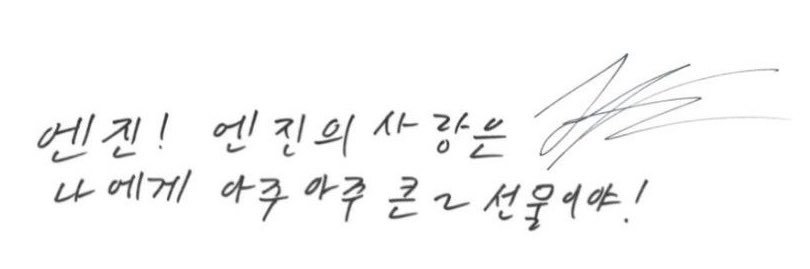 엔진! 엔진의 사랑은
나에게 아주아주 큰~ 선물이야!